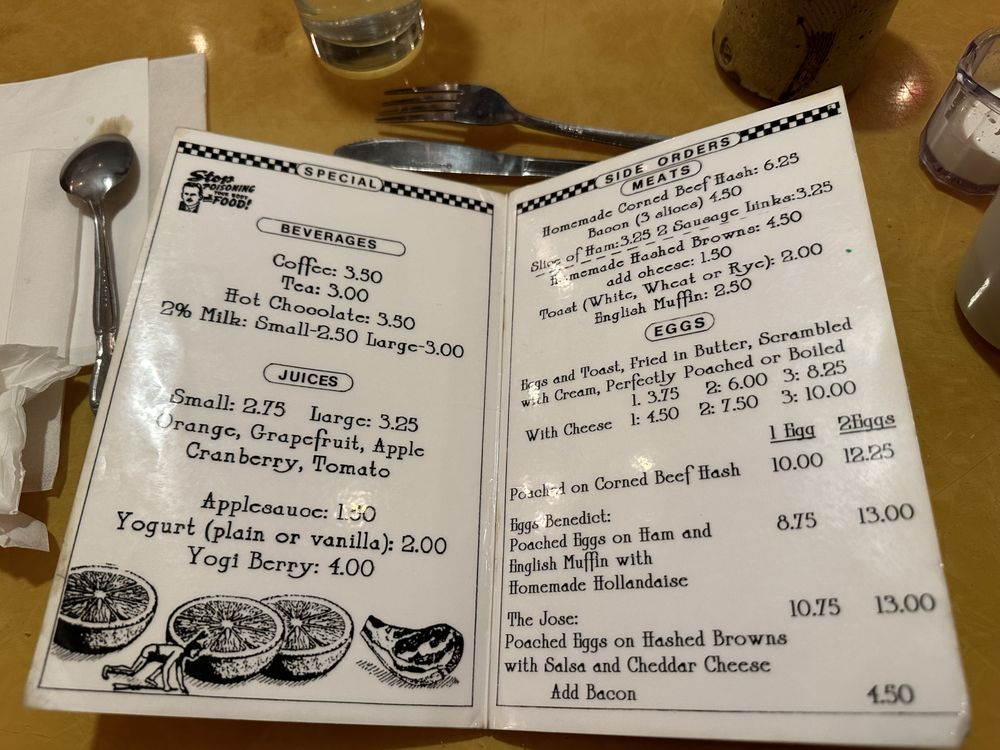 SPECIAL
Stop
POISONING
YOUR BODY
with
FOOD!
BEVERAGES
Coffee: 3.50
Tea: 3.00
Hot Chocolate: 3.50
2% Milk: Small-2.50 Large-3.00
JUICES
Small: 2.75 Large: 3.25
Orange, Grapefruit, Apple
Cranberry, Tomato
Applesauce: 1.50
Yogurt (plain or vanilla): 2.00
Yogi Berry: 4.00
SIDE ORDERS
MEATS
Homemade Corned Beef Hash: 6.25
Bacon (3 slices) 4.50
Slice of Ham:3.25 2 Sausage Links:3.25
Homemade Hashed Browns: 4.50
add cheese: 1.50
Toast (White, Wheat or Rye): 2.00
English Muffin: 2.50
EGGS
Eggs and Toast, Fried in Butter, Scrambled
with Cream, Perfectly Poached or Boiled
1. 3.75 2: 6.00 3: 8.25
With Cheese 1: 4.50 2: 7.50 3: 10.00
1 Egg 2Eggs
Poached on Corned Beef Hash 10.00 12.25
Eggs Benedict: 8.75 13.00
Poached Eggs on Ham and
English Muffin with
Homemade Hollandaise
The Jose: 10.75 13.00
Poached Eggs on Hashed Browns
with Salsa and Cheddar Cheese
Add Bacon 4.50